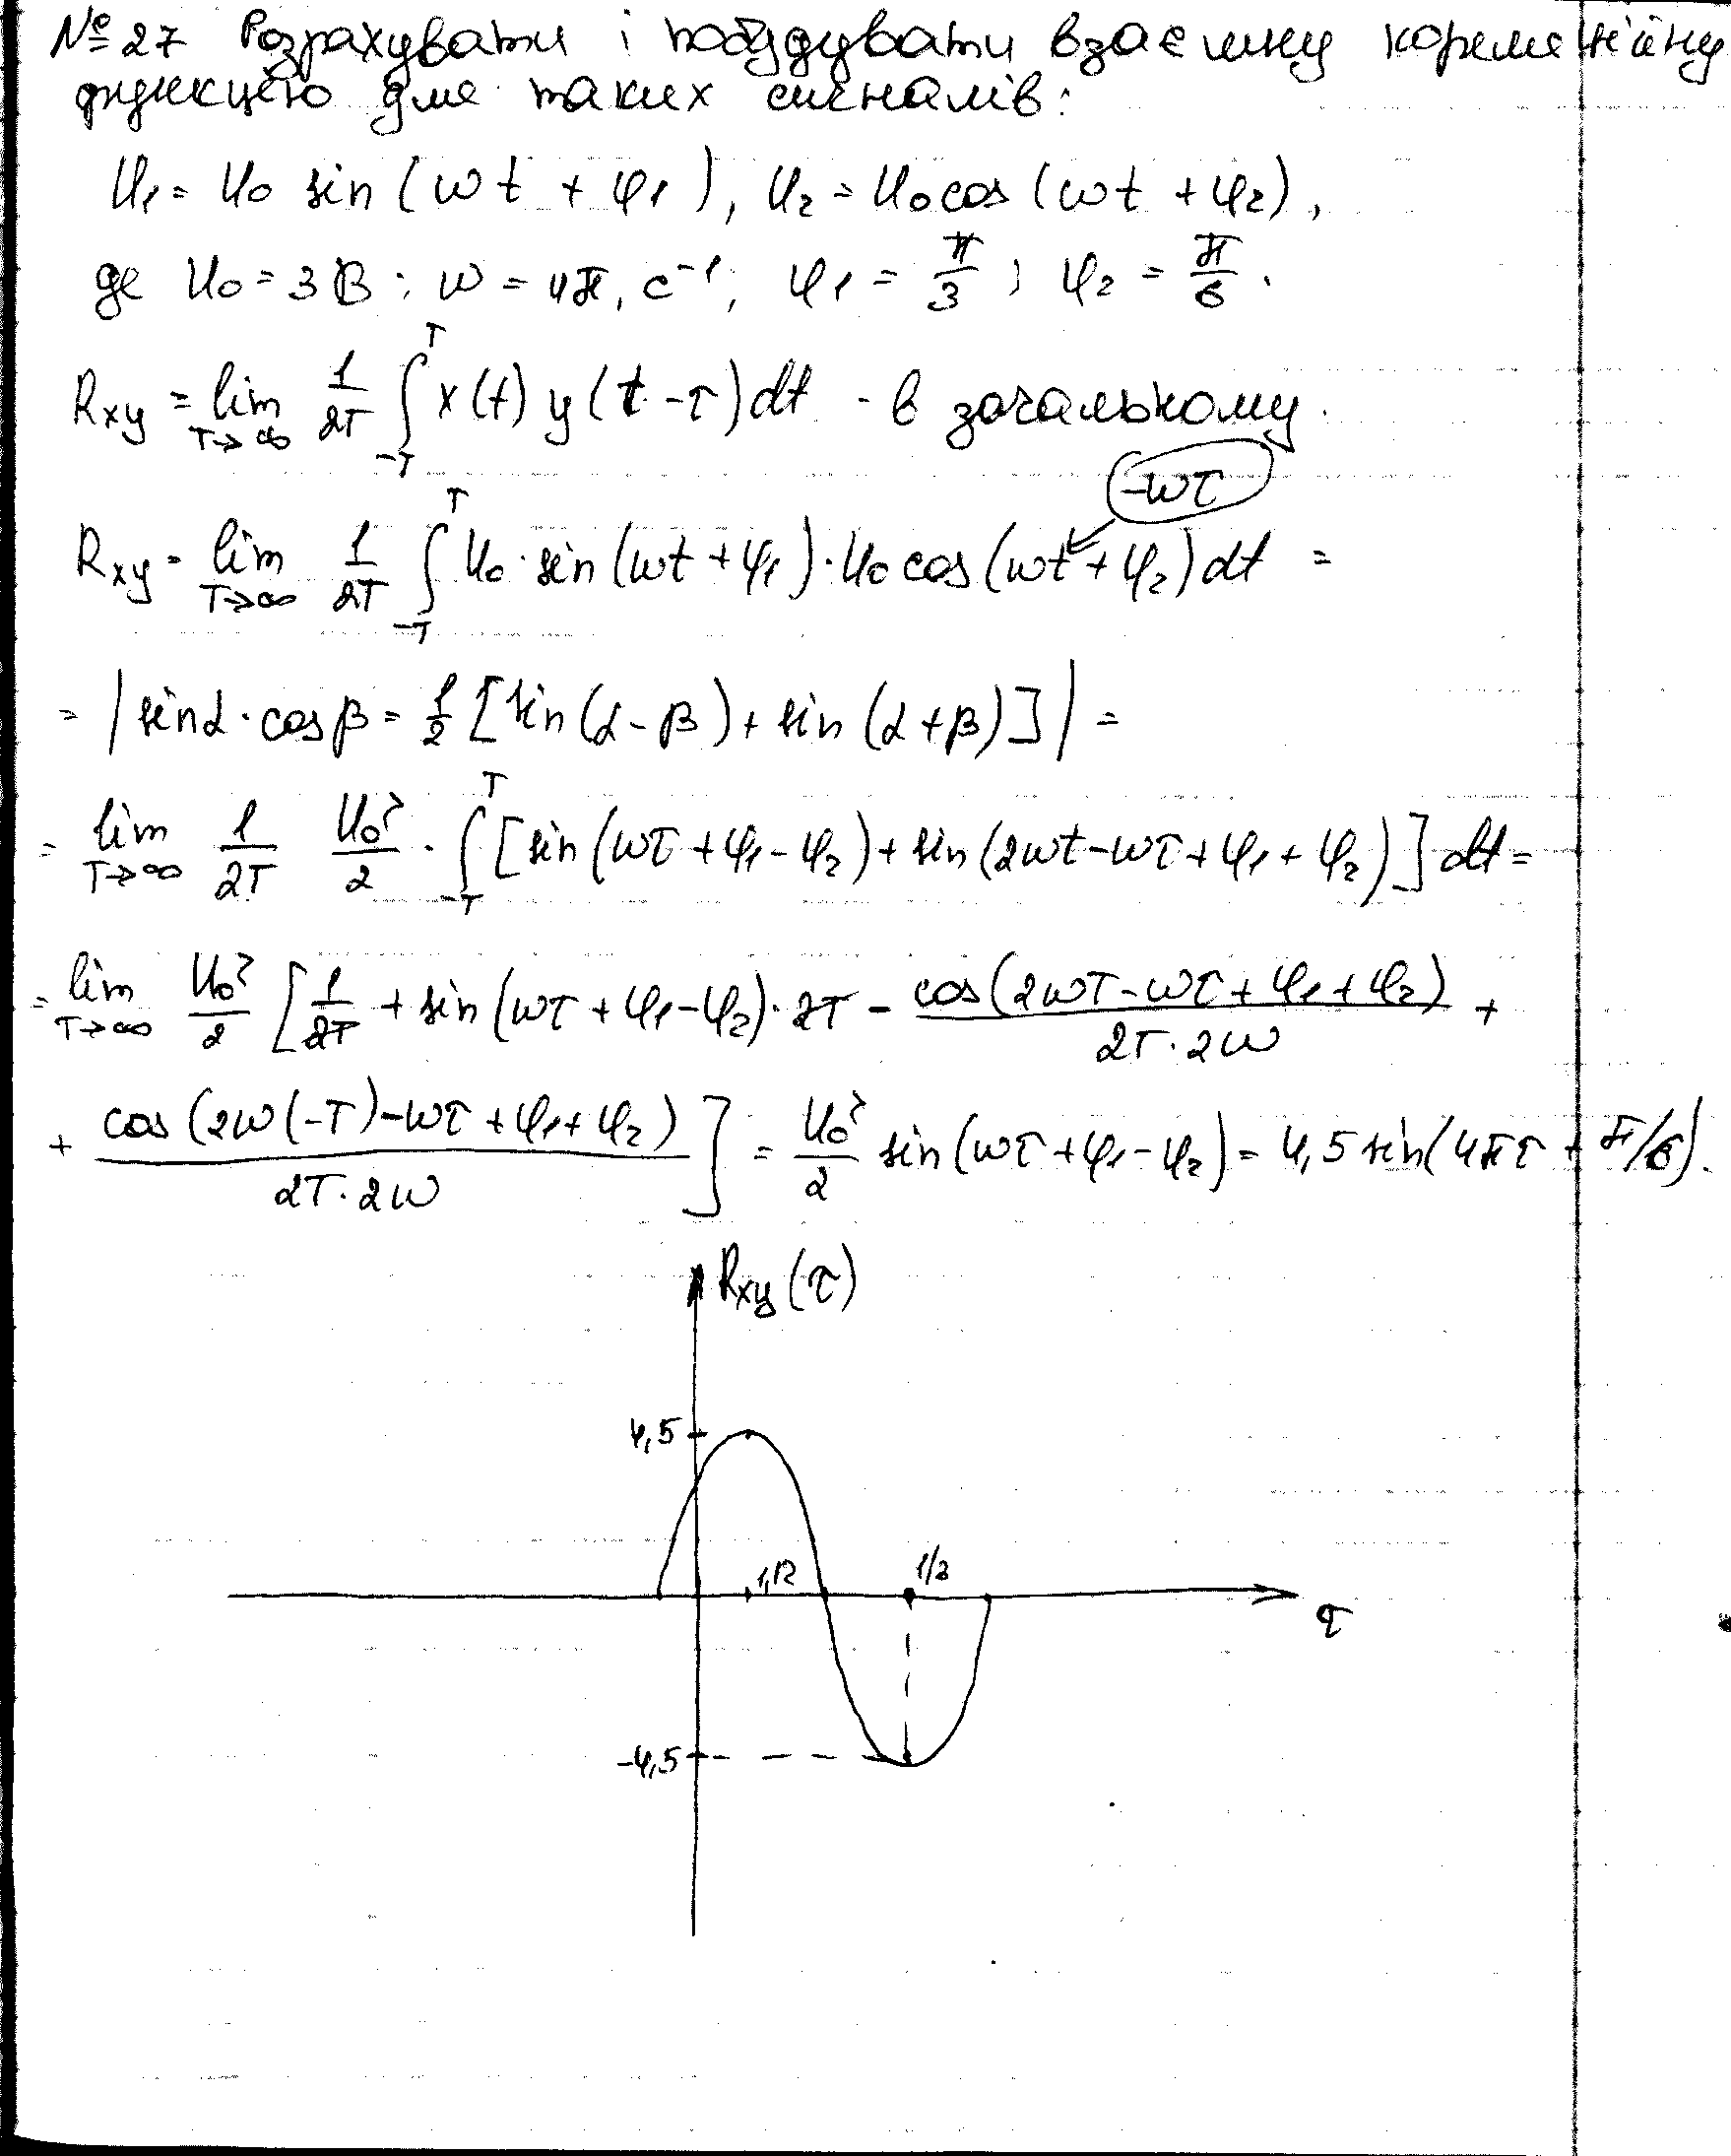 № 27 Розрахувати і побудувати взаємну кореляційну
функцію для таких сигналів:
U₁ = U₀ sin (ωt + φ₁), U₂ = U₀ cos (ωt + φ₂),
де U₀ = 3 В; ω = 4π, с⁻¹; φ₁ = π/3; φ₂ = π/6.
Rxy = lim T→∞ 1/2T ∫ -T T x(t) y(t - τ) dt - в загальному.
-ωτ
Rxy = lim T→∞ 1/2T ∫ -T T U₀ · sin (ωt + φ₁) · U₀ cos (ωt + φ₂) dt =
= | sin α · cos β = 1/2 [sin (α - β) + sin (α + β)] | =
= lim T→∞ 1/2T U₀²/2 · ∫ -T T [sin (ωτ + φ₁ - φ₂) + sin (2ωt - ωτ + φ₁ + φ₂)] dt =
= lim T→∞ U₀²/2 [1/2T + sin (ωτ + φ₁ - φ₂) · 2T - cos (2ωT - ωτ + φ₁ + φ₂)/2T · 2ω +
+ cos (2ω(-T) - ωτ + φ₁ + φ₂)/2T · 2ω ] = U₀²/2 sin (ωτ + φ₁ - φ₂) = 4,5 sin (4πτ + π/6).
Rxy (τ)
4,5
1/12 1/3
τ
-4,5